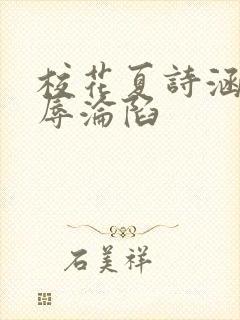 校花夏詩涵
辱淪陷
石美祥